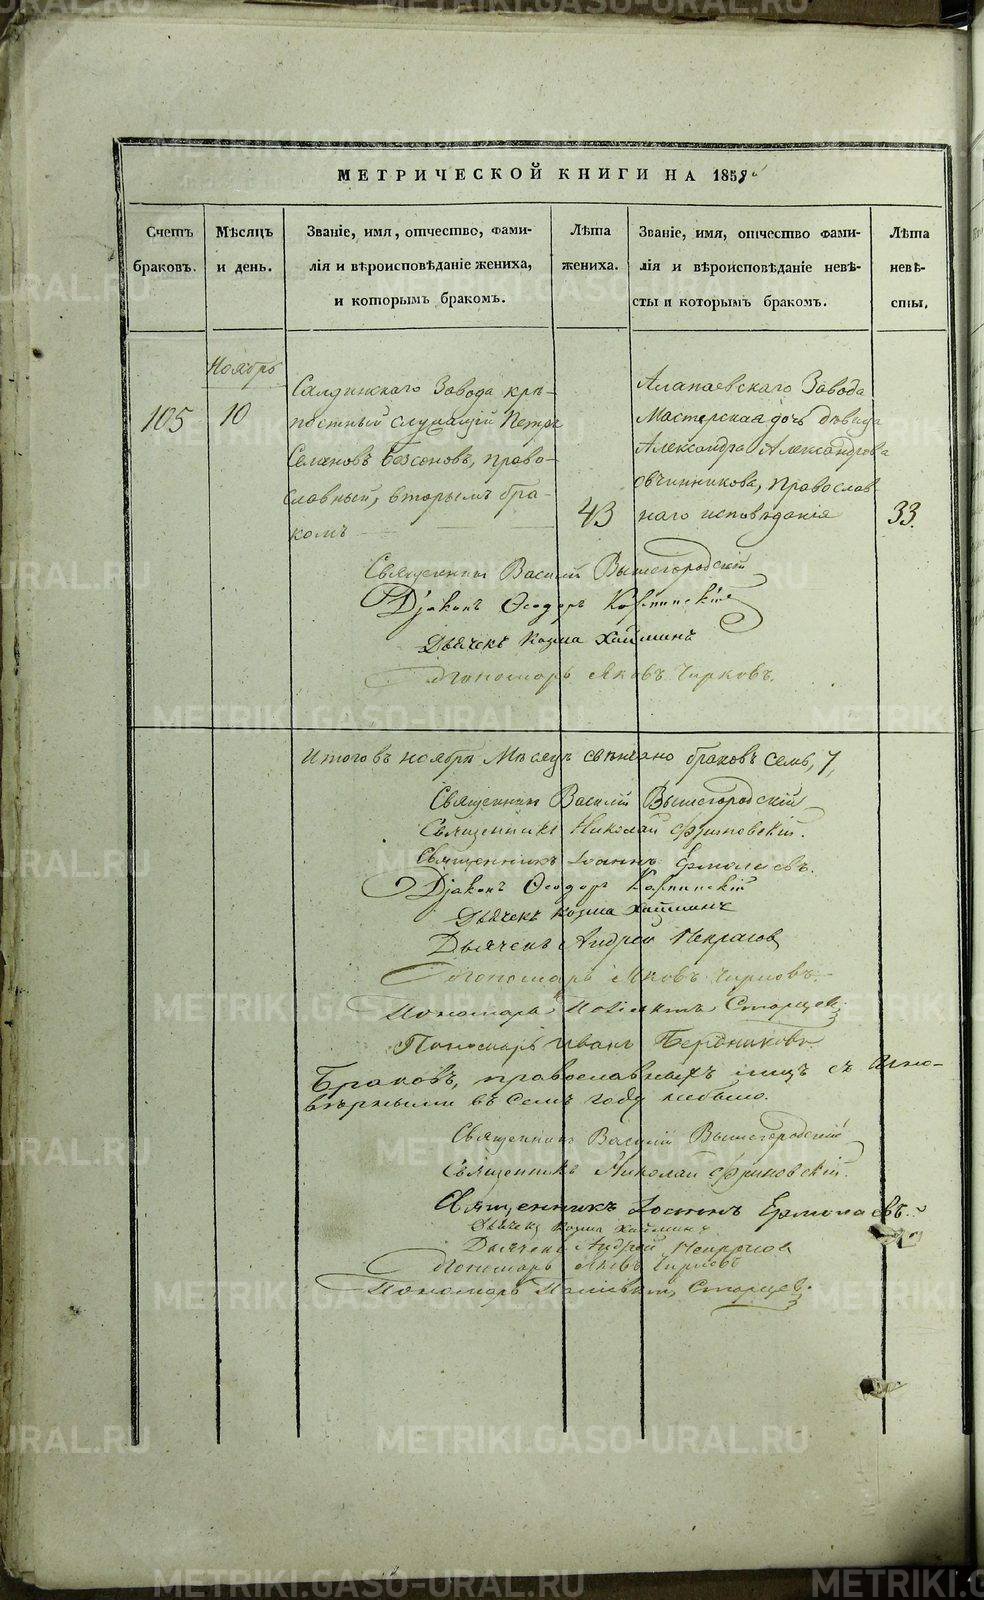 МЕТРИЧЕСКОЙ КНИГИ НА 1858й
Счетъ браковъ.
Мѣсяцъ и день.
Званіе, имя, отчество, фамилія и вѣроисповѣданіе жениха, и которымъ бракомъ.
Лѣта жениха.
Званіе, имя, отчество фамилія и вѣроисповѣданіе невѣсты и которымъ бракомъ.
Лѣта невѣсты.
Ноябрь
105
10
Салдинскаго Завода крѣ-
постный служащій Петръ
Селановъ Безсоновъ, право-
славный, вторымъ бра-
комъ
43
Алапаевскаго Завода
Мастерская дочь дѣвица
Александра Александрова
Овчинникова, Православ
наго исповѣданія
33.
Священникъ Василій Вышегородскій
Діаконъ Ѳеодоръ
Дьячекъ Козма Хайминъ
Пономарь Яковъ Чирковъ.
Итого въ ноябрѣ Мѣсяцѣ свѣнчано браковъ семь, 7,
Священникъ Василій Вышегородскій
Священникъ Николай Фриновскій.
Священникъ Іоаннъ Ермолаевъ.
Діаконъ Ѳеодоръ
Дьячекъ Козма Хайминъ
Дьячекъ Андрей Некрасов
Пономарь Яковъ Чирковъ.
Пономарь Старцев.
Пономарь Иванъ Бердниковъ.
Браковъ, православныхъ лицъ съ Ино-
вѣрными въ семъ году небыло.
Священникъ Василій Вышегородскій
Священникъ Николай Фриновскій.
Священникъ Іоаннъ Ермолаевъ.
Дьячекъ Козма Хайминъ
Дьячекъ Андрей Некрасов
Пономарь Яковъ Чирковъ
Пономарь Старцев.
METRIKI.GASO-URAL.RU